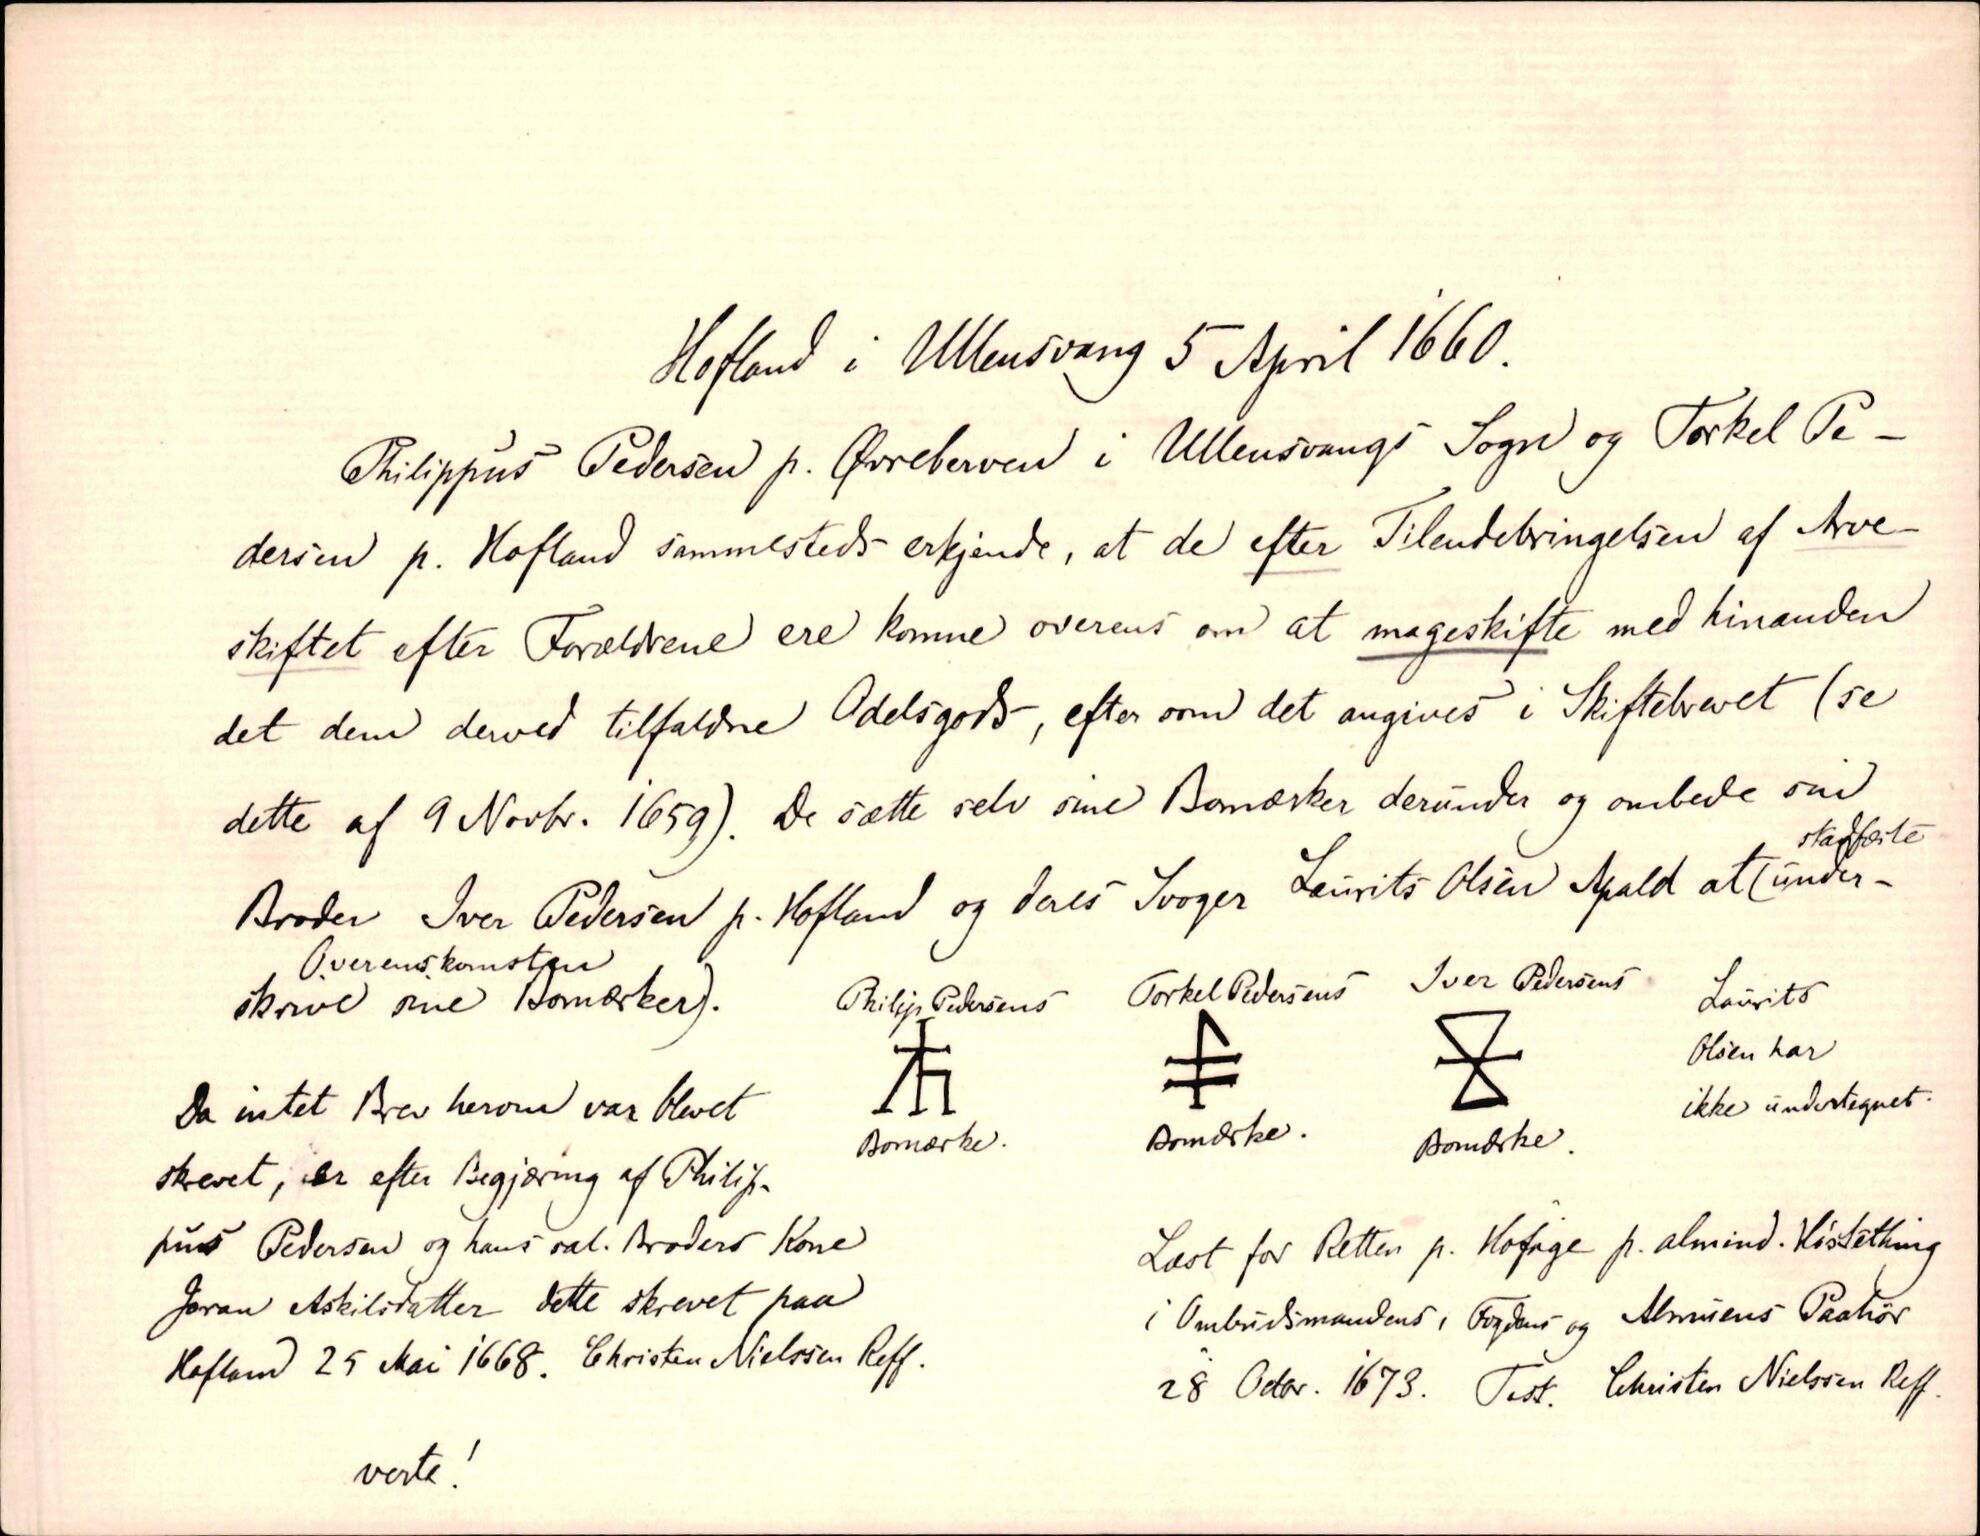 Hofland i Ullensvang 5 April 1660.
Philippus Pedersen p. Øvreberven i Ullensvangs Sogn og Torkel Pe-
dersen p. Hofland sammesteds erkjende, at de efter Tilendebringelsen af Arve-
skiftet efter Forældrene ere komne overens om at mageskifte med hinanden
det dem derved tilfaldne Odelsgods, efter som det angives i Skiftebrevet (se
dette af 9 Novbr. 1659). De sætte selv sine Bomærker derunder og ombede sin
stadfæste
Broder Iver Pedersen p. Hofland og deres Svoger Laurits Olsen Apald at (under-
Overenskomsten
skrive sine Bomærker).
Philip Pedersens
Bomærke.
Torkel Pedersens
Bomærke.
Iver Pedersens
Bomærke.
Laurits
Olsen har
ikke undertegnet.
Da intet Brev herom var blevet
skrevet, er efter Begjæring af Philip-
pus Pedersen og hans sal. Broders Kone
Joran Askilsdatter dette skrevet paa
Hofland 25 Mai 1668. Christen Nielssen Reff.
Læst for Retten p. Hofage p. almind. Høstething
i Ombudsmandens, Fogdens og Almuens Paahør
28 Octbr. 1673. Test. Christen Nielssen Reff.
verte!